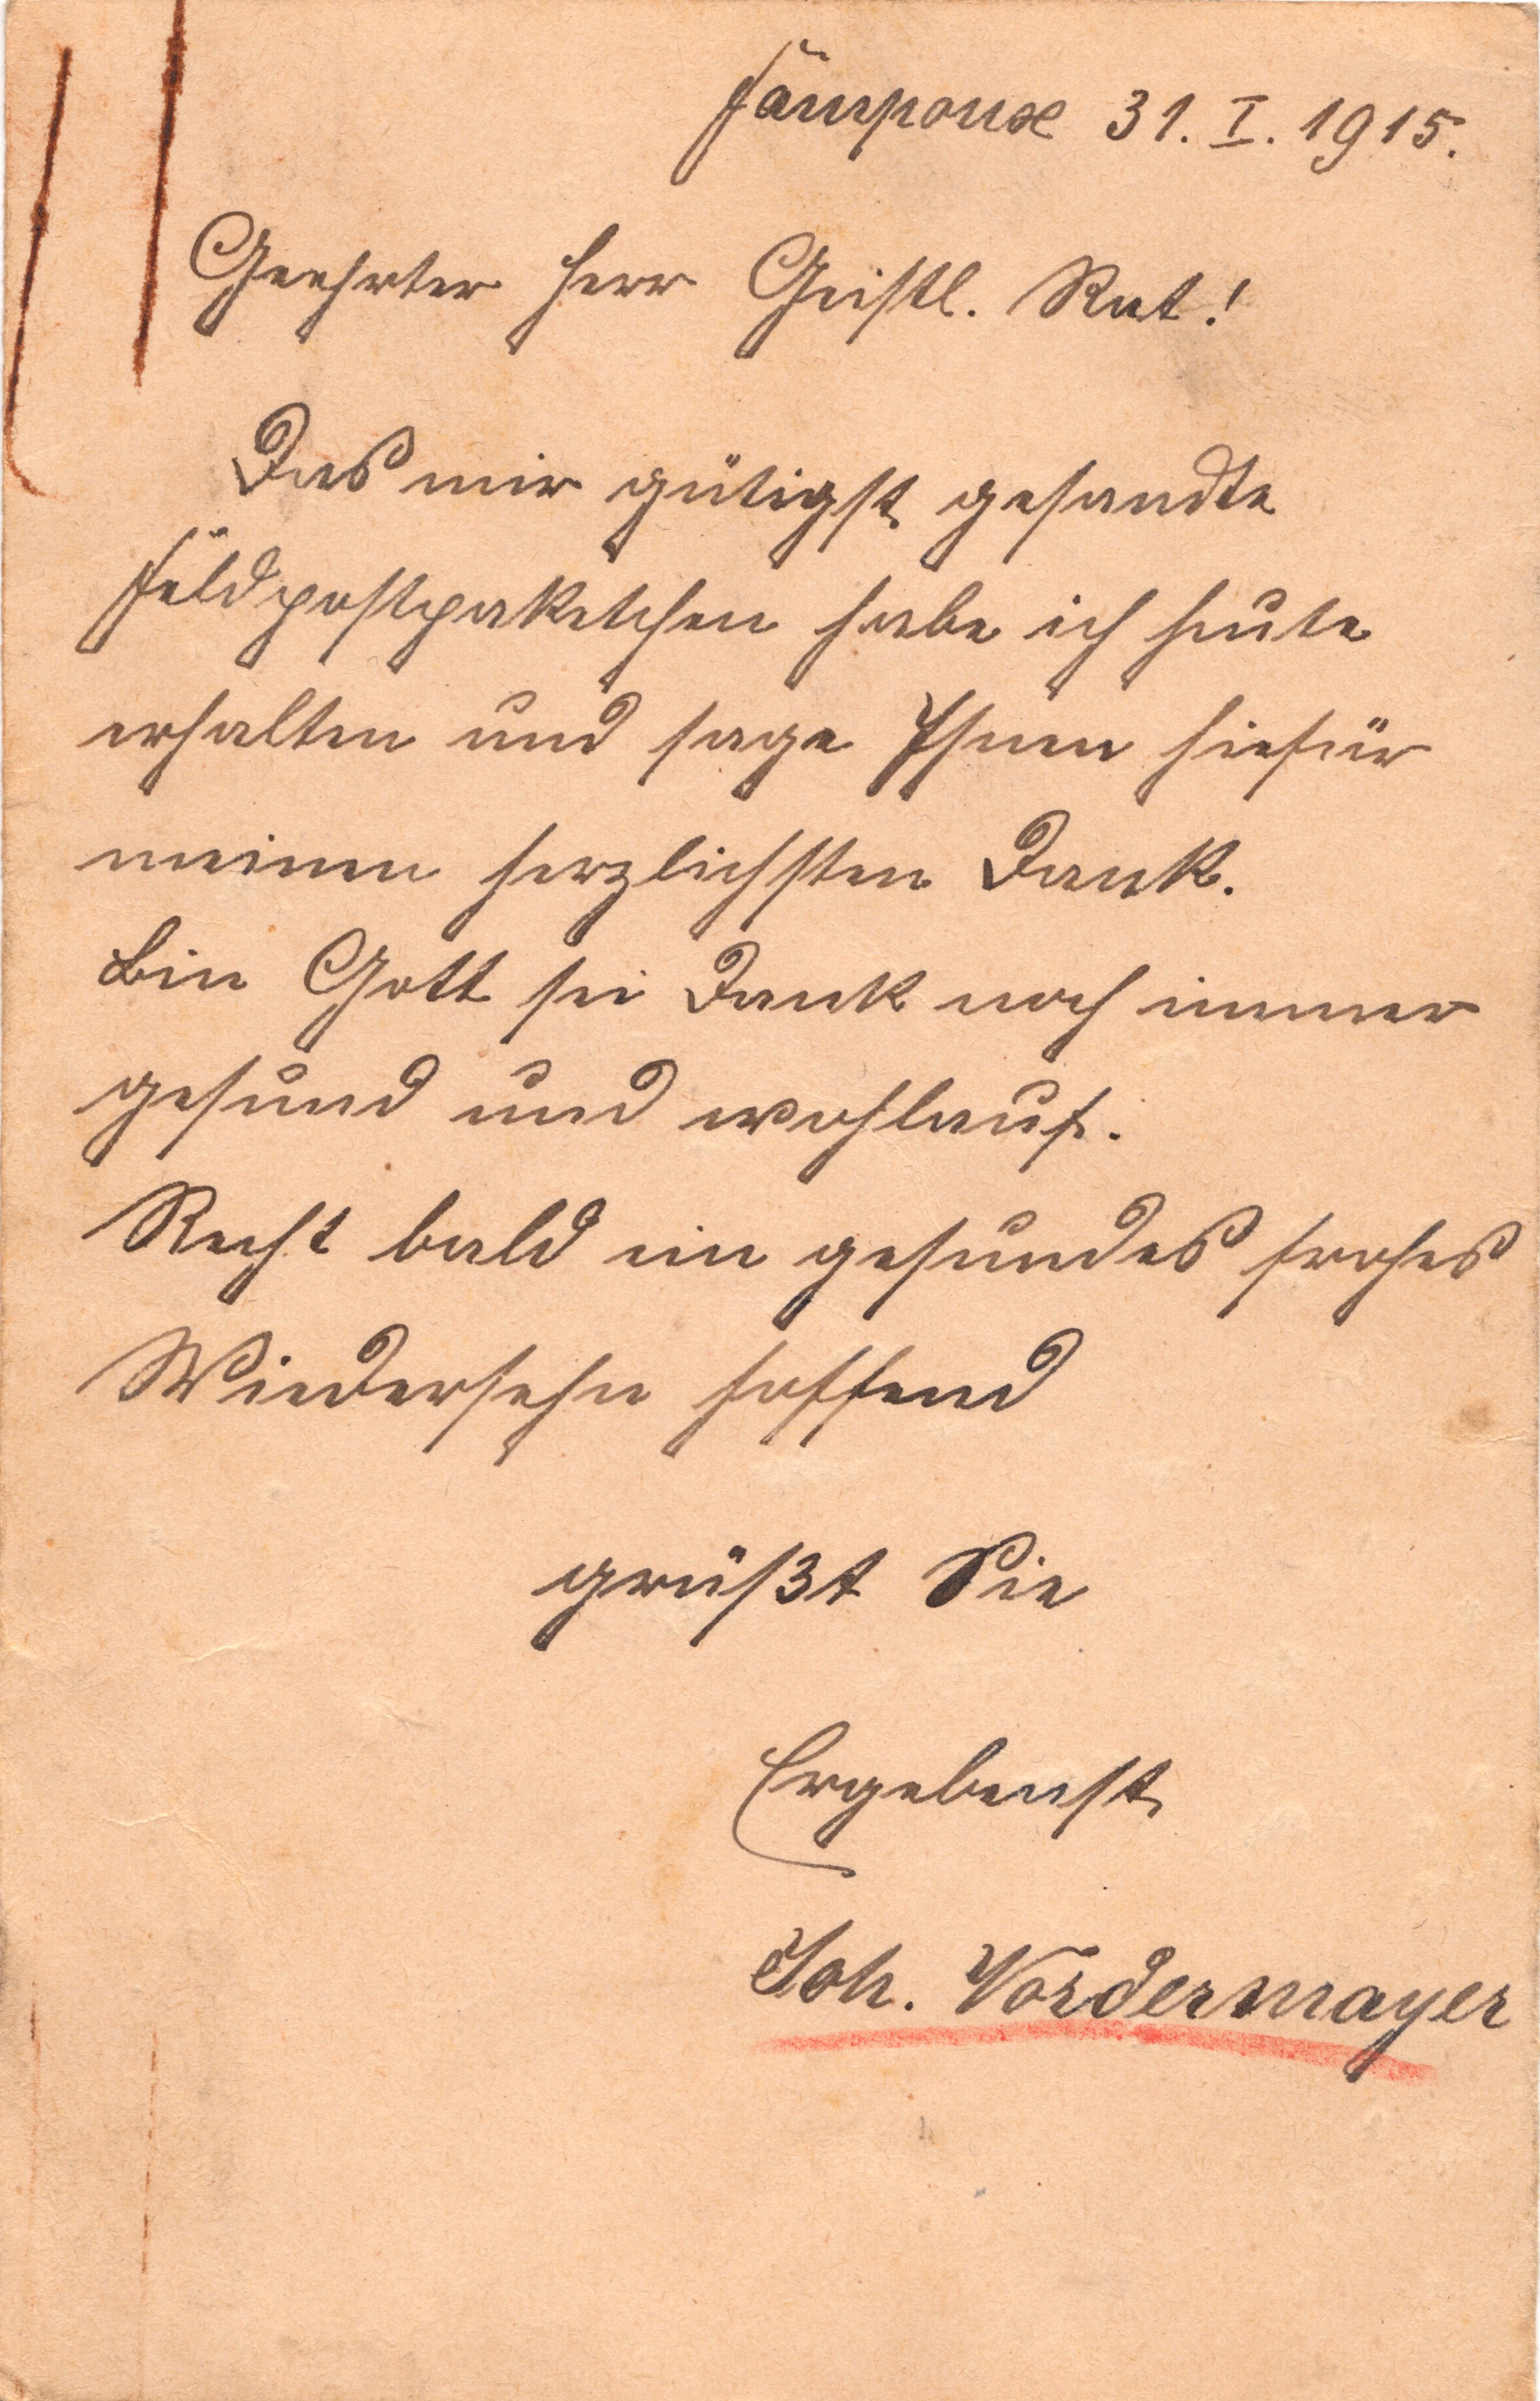 Fampoux 31. I. 1915.
Geehrter Herr Geistl. Rat!
Das mir gütigst gesandte
Feldpostpaketchen habe ich heute
erhalten und sage Ihnen hiefür
meinen herzlichsten Dank.
Bin Gott sei Dank noch immer
gesund und wohlauf.
Recht bald ein gesundes frohes
Wiedersehn hoffend
grüßt Sie
Ergebenst
Joh. Vordermayer